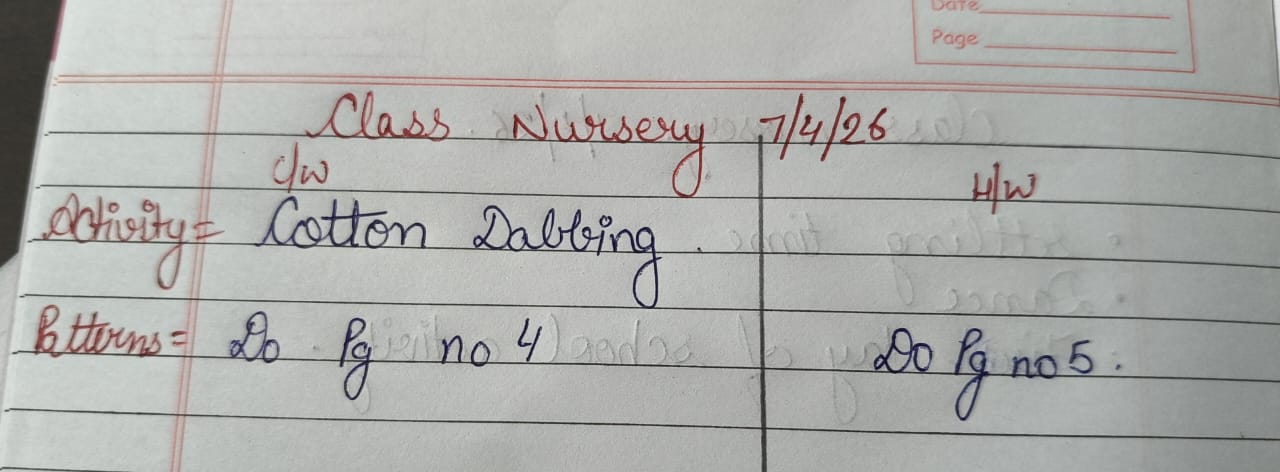 Date
Page
Class Nursery 7/4/26
C/W H/W
Activity = Cotton Dabbing.
Patterns = Do Pg no 4 Do Pg no 5.